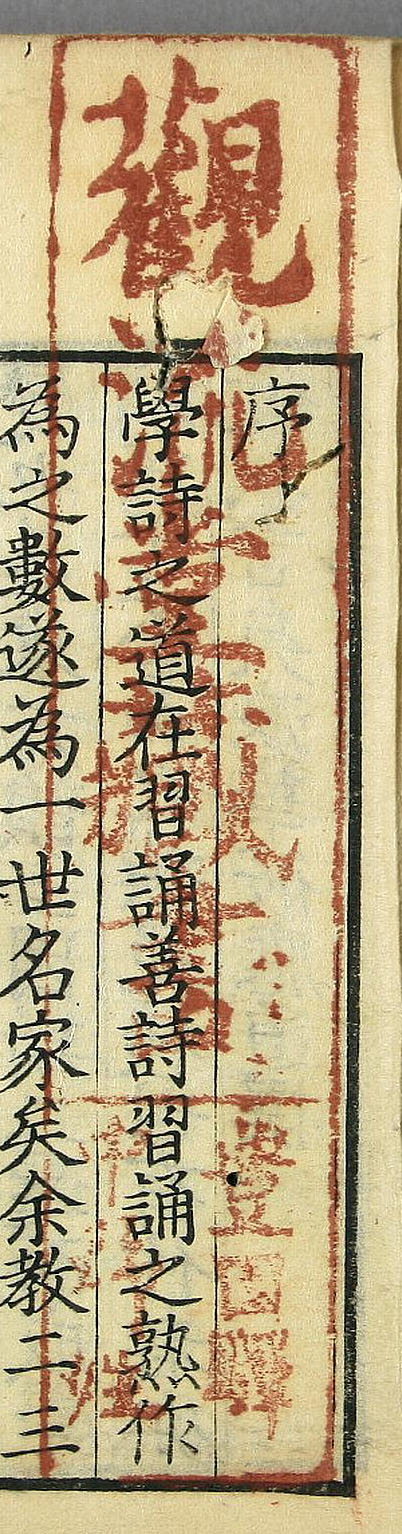 序
學詩之道在習誦善詩習誦之熟作
為之數遂為一世名家矣余教二三
觀